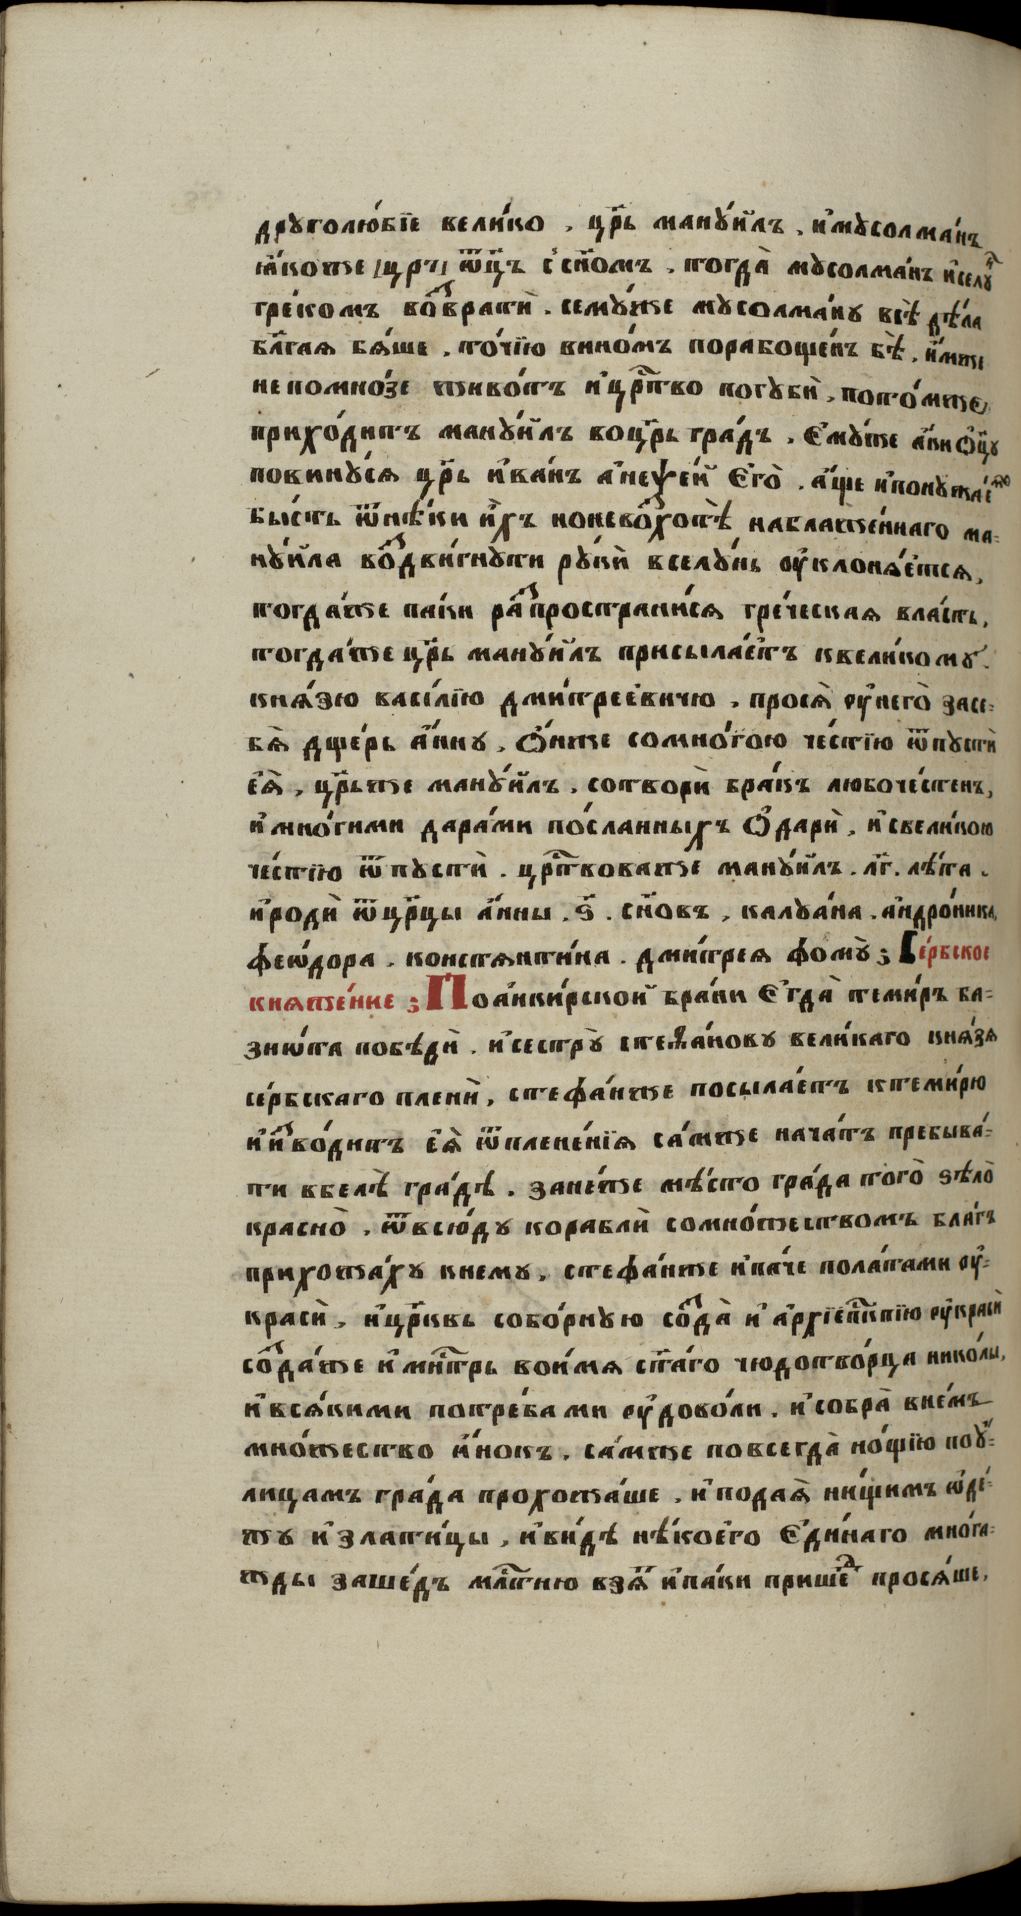 друголю́бїе вели́ко , цр҃ь мануи́лъ , и҆мусолма́нъ
ꙗ҆́коже /цръ/ ѿц҃ъ с̾сн҃омъ . тогда̀ мусолма́нъ и҆селу́ⷩ
гре́комъ воⷥвратѝ . сему́же мусолма́ну всѣ̀ дѣ́ла
бл҃гая бя́ше , то́чїю вино́мъ порабоще́нъ бѣ̀ , и҆́мже
непомно́зе живо́тъ и҆црⷭ҇тво погубѝ , пото́мже
прихо́дитъ мануи́лъ воцр҃ь гра́дъ , є҆му́же а҆́би ѻ҆ц҃у
повину́ся цр҃ь и҆ва́нъ а҆неѱе́й є҆го̀ . а҆́ще и҆понужа́є҆мо
бы́сть ѿнѣ́ки и҆́хъ ноневоⷥхотѣ̀ наблаже́ннаго ма-
нуи́ла воⷥдви́гнути рукѝ вселу́нь ѹ҆клоня́є҆тся ,
тогда́же паки раⷥпространи́ся гре́ческая вла́сть ,
тогда́же цр҃ь мануи́лъ присыла́є҆тъ квели́кому
кня́зю васи́лїю дми́треевичю , прося̀ ѹ҆него̀ засе-
бя̀ дще́рь а҆́нну , ѻ҆́нже сомно́гою че́стїю ѿпустѝ
є҆я̀ , цр҃ьже мануи́лъ , сотворѝ бра́къ любоче́стенъ ,
и҆мно́гими дара́ми по́сланныхъ ѻ҆дарѝ , и҆свели́кою
че́стїю ѿпустѝ . црⷭ҇твоваже мануи́лъ . лг҃ . лѣ́та .
и҆родѝ ѿцр҃цы а҆́нны . ѕ҃ . сн҃овъ , калуа́на . а҆ндро́ника ,
феѡ́дора . константи́на . дми́трея фому̀ ; Се́рбское
княже́ние ; Поа҆нки́рской бра́ни є҆гда̀ теми́ръ ба-
зиѡ́та побѣдѝ . и҆сестру̀ стеѳа́нову вели́каго кня́зя
се́рбскаго пленѝ , стефа́нже посыла́етъ ктеми́рю
и҆иⷥво́дитъ є҆я̀ ѿплене́нїя са́мже нача́тъ пребыва́-
ти вбелѣ̀ гра́дѣ . зане́же мѣ́сто гра́да того̀ ѕѣло̀
красно̀ , ѿвсю́ду кораблѝ сомно́жествомъ бла́гъ
прихожа́ху кнему , стефа́нже и҆па́че пола́тами ѹ҆-
красѝ , и҆цр҃ковь собо́рную соⷥда̀ и҆ а҆рхїепⷭ҇кпїю ѹ҆красѝ
соⷥда́же и҆мнⷭ҇трь воимя ст҃а́го чюдотво́рца нико́лы ,
и҆вся́кими потре́бами ѹ҆дово́ли . и҆собра̀ вне́мъ
мно́жество и҆́нокъ , са́мже повсегда̀ но́щїю поу҆-
лицамъ гра́да прохожа́ше , и҆подая̀ ни́щимъ ѡ҆де́-
жу и҆злати́цы , и҆ви́дѣ нѣ́коего є҆ди́наго мно́га-
жды заше́дъ млⷭ҇тню взя́ⷧ и҆па́ки прише́ⷣ прося́ше ,